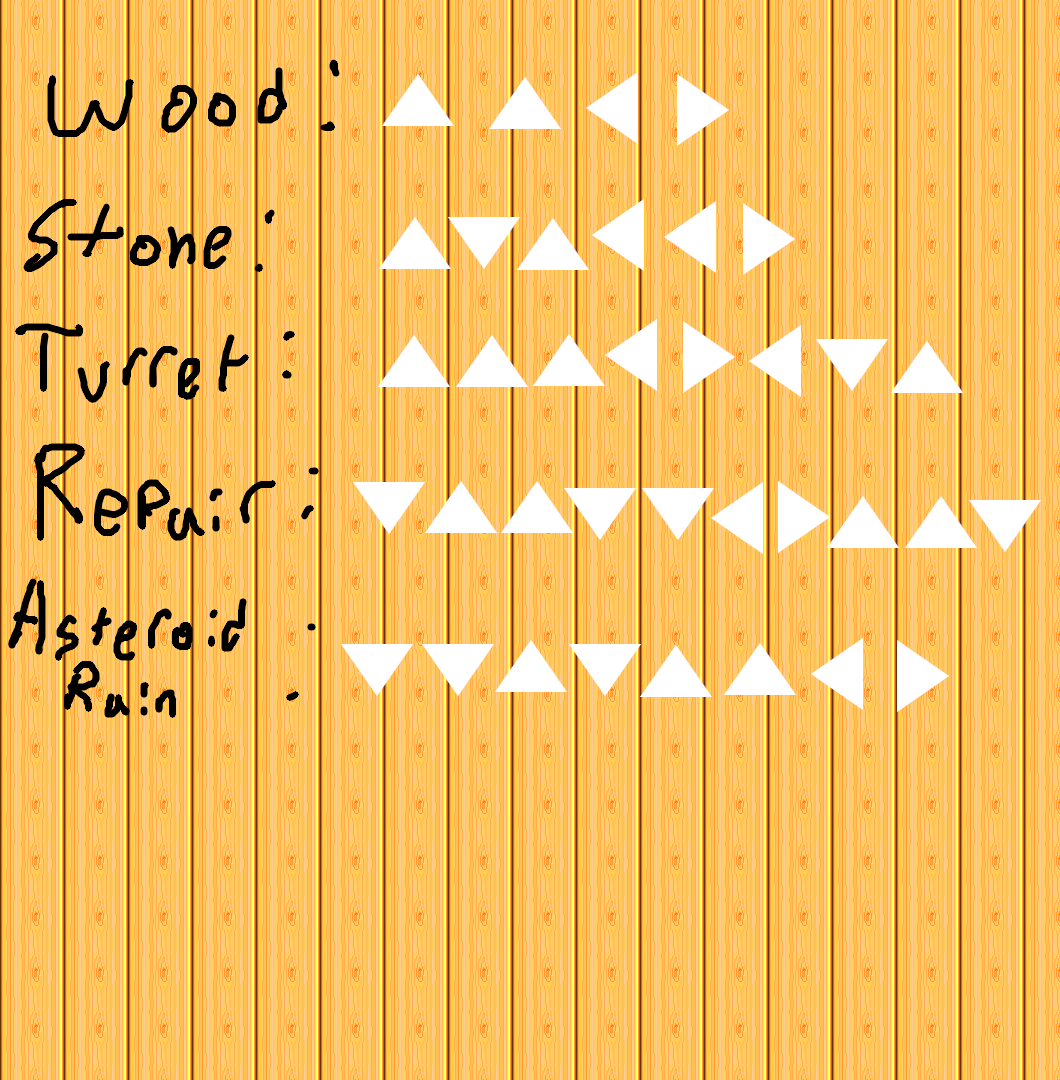 Wood: ▲ ▲ ◀ ▶
Stone: ▲ ▼ ▲ ◀ ◀ ▶
Turret: ▲ ▲ ▲ ◀ ▶ ◀ ▼ ▲
Repair: ▼ ▲ ▲ ▼ ▼ ◀ ▶ ▲ ▲ ▼
Asteroid
Rain: ▼ ▼ ▲ ▼ ▲ ▲ ◀ ▶